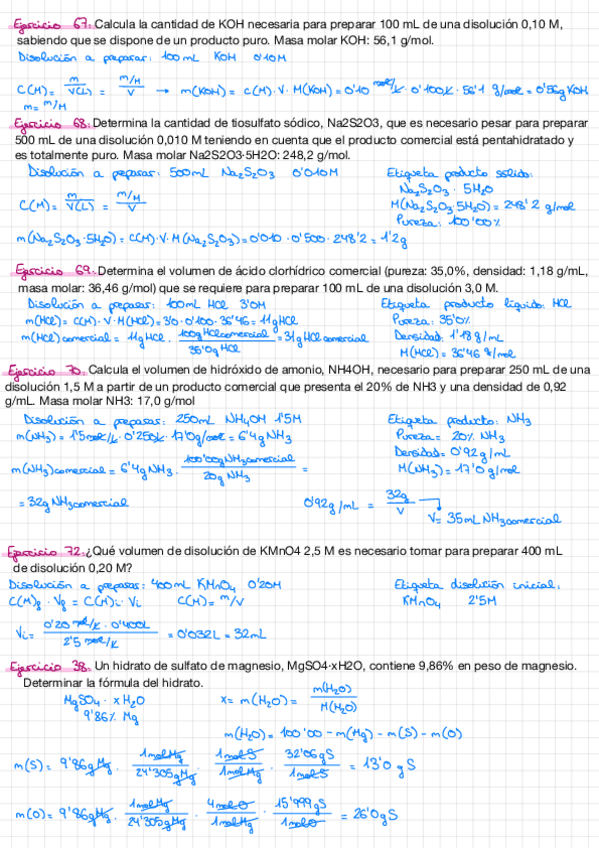 Ejercicio 67: Calcula la cantidad de KOH necesaria para preparar 100 mL de una disolución 0,10 M,
sabiendo que se dispone de un producto puro. Masa molar KOH: 56,1 g/mol.
Disolución a preparar: 100mL KOH 0'10M
C(M) = m/V(L) = m/M/V → m(KOH) = C(M)·V·M(KOH) = 0'10 mol/L · 0'100L · 56'1 g/mol = 0'56g KOH
m = m/M
Ejercicio 68: Determina la cantidad de tiosulfato sódico, Na2S2O3, que es necesario pesar para preparar
500 mL de una disolución 0,010 M teniendo en cuenta que el producto comercial está pentahidratado y
es totalmente puro. Masa molar Na2S2O3·5H2O: 248,2 g/mol.
Disolución a preparar: 500mL Na₂S₂O₃ 0'010M Etiqueta producto sólido:
Na₂S₂O₃ · 5H₂O
C(M) = m/V(L) = m/M/V M(Na₂S₂O₃·5H₂O) = 248'2 g/mol
Pureza: 100'00%
m(Na₂S₂O₃·5H₂O) = C(M)·V·M(Na₂S₂O₃) = 0'010 · 0'500 · 248'2 = 1'2g
Ejercicio 69: Determina el volumen de ácido clorhídrico comercial (pureza: 35,0%, densidad: 1,18 g/mL,
masa molar: 36,46 g/mol) que se requiere para preparar 100 mL de una disolución 3,0 M.
Disolución a preparar: 100mL HCl 3'0M Etiqueta producto líquido: HCl
m(HCl) = C(M)·V·M(HCl) = 3'0·0'100·36'46 = 11gHCl Pureza: 35'0%
m(HCl) comercial = 11gHCl · 100gHClcomercial/35'0gHCl = 31gHClcomercial Densidad: 1'18g/mL
M(HCl) = 36'46 g/mol
Ejercicio 70: Calcula el volumen de hidróxido de amonio, NH4OH, necesario para preparar 250 mL de una
disolución 1,5 M a partir de un producto comercial que presenta el 20% de NH3 y una densidad de 0,92
g/mL. Masa molar NH3: 17,0 g/mol
Disolución a preparar: 250mL NH₄OH 1'5M Etiqueta producto: NH₃
m(NH₃) = 1'5mol/L · 0'250L · 17'0g/mol = 6'4gNH₃ Pureza = 20% NH₃
Densidad = 0'92g/mL
m(NH₃)comercial = 6'4gNH₃ · 100'00gNH₃comercial/20gNH₃ = M(NH₃) = 17'0 g/mol
= 32gNH₃comercial 0'92g/mL = 32g/V
V = 35mL NH₃comercial
Ejercicio 72: ¿Qué volumen de disolución de KMnO4 2,5 M es necesario tomar para preparar 400 mL
de disolución 0,20 M?
Disolución a preparar: 400mL KMnO₄ 0'20M Etiqueta disolución inicial:
C(M)f · Vf = C(M)i · Vi C(M) = m/V KMnO₄ 2'5M
Vi = 0'20 mol/L · 0'400L/2'5 mol/L = 0'032L = 32mL
Ejercicio 38: Un hidrato de sulfato de magnesio, MgSO4·xH2O, contiene 9,86% en peso de magnesio.
Determinar la fórmula del hidrato.
MgSO₄ · xH₂O x = m(H₂O) = m(H₂O)/M(H₂O)
9'86% Mg
m(H₂O) = 100'00 - m(Mg) - m(S) - m(O)
m(S) = 9'86gMg · 1molMg/24'305gMg · 1molS/1molMg · 32'06gS/1molS = 13'0gS
m(O) = 9'86gMg · 1molMg/24'305gMg · 4molO/1molMg · 15'999gS/1molO = 26'0gS